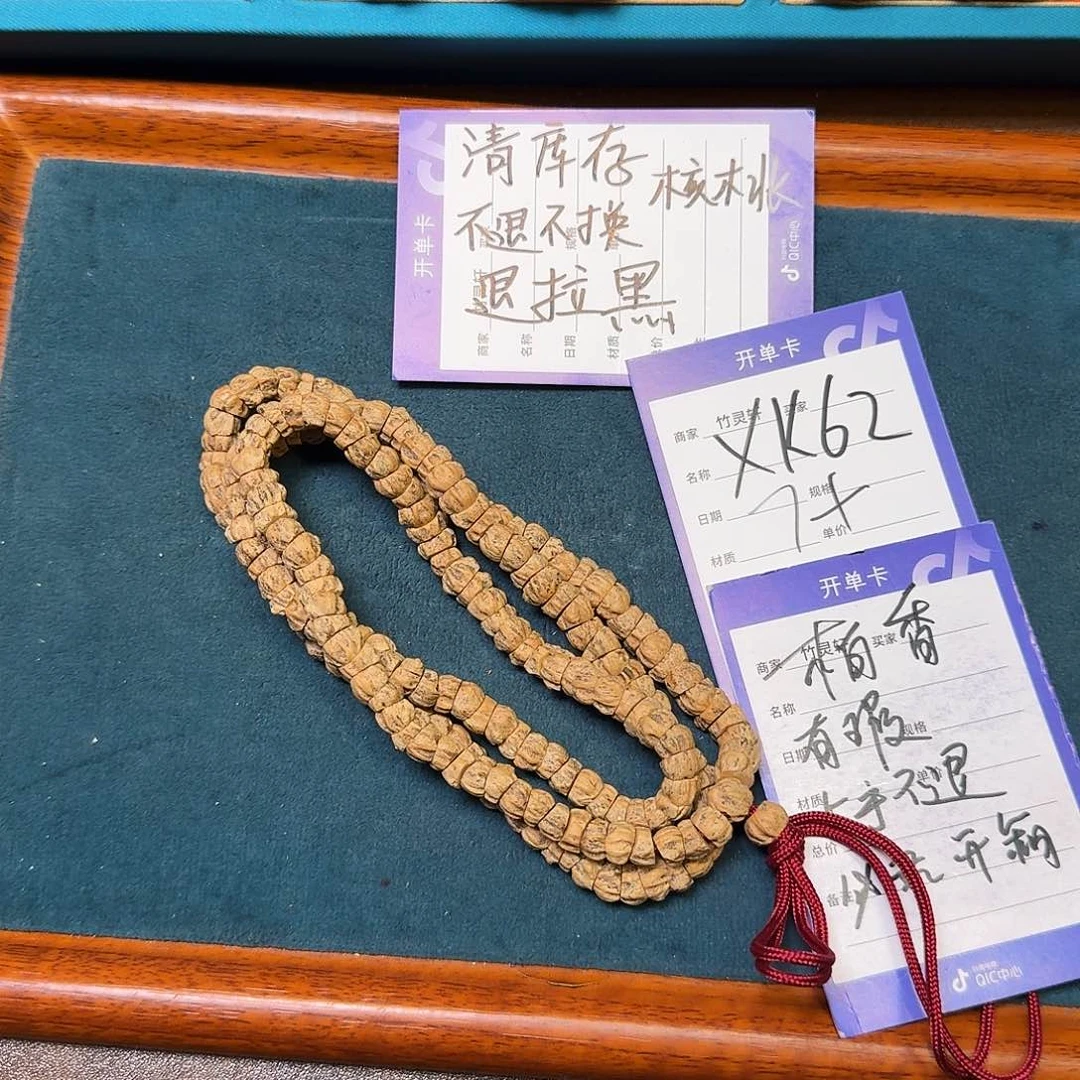 清库存
核桃
不退不换
退拉黑
开单卡
商家
名称
日期
材质
QIC中心
开单卡
商家 竹灵轩 买家
XK62
名称
7十
规格
日期
单价
材质
开单卡
柏香
商家 竹灵轩 买家
名称
有瑕
日期
规格
不退
材质
单价
总价
开箱
备注
QIC中心